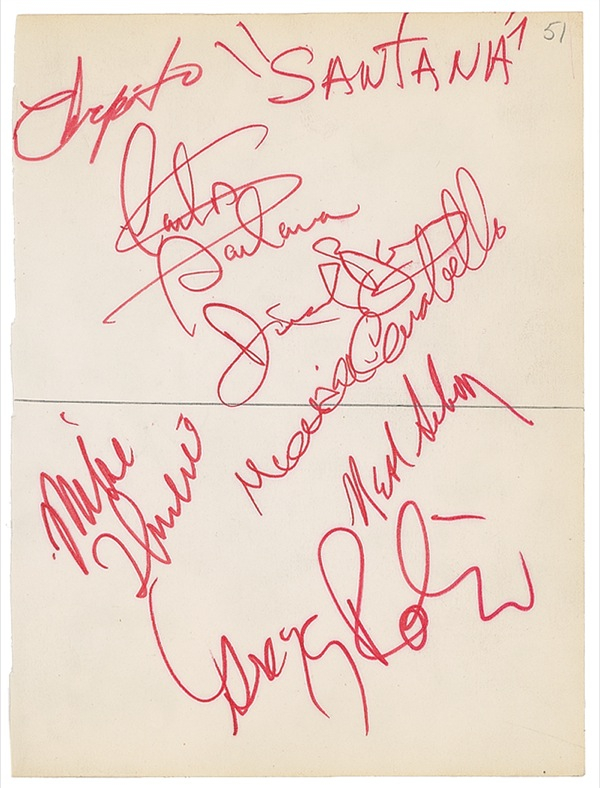 Chepito "SANTANA" 51
Carlos
Santana
David Brown
Michael Carabello
Neal Schon
Mike
Shrieve
Gregg Rolie